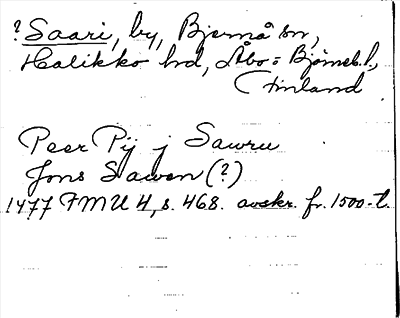 ? Saari, by, Bjernå sn,
Halikko hd, Åbo o Björneb. l.,
Finland
Peer Pij j Sawru
Jons Sawen (?)
1477 FMU 4, s. 468. avskr. fr. 1500-t.